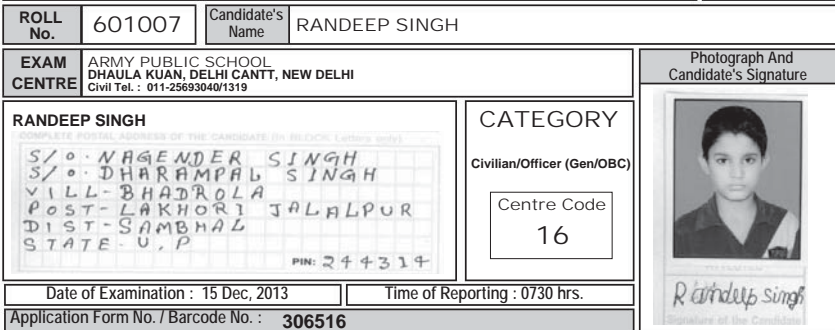 ROLL No. 601007 Candidate's Name RANDEEP SINGH
EXAM CENTRE
ARMY PUBLIC SCHOOL
DHAULA KUAN, DELHI CANTT, NEW DELHI
Civil Tel. : 011-25693040/1319
Photograph And
Candidate's Signature
RANDEEP SINGH
COMPLETE POSTAL ADDRESS OF THE CANDIDATE (In BLOCK Letters only)
S/o. NAGENDER SINGH
S/o. DHARAMPAL SINGH
VILL-BHADROLA
POST-LAKHORI JALALPUR
DIST-SAMBHAL
STATE-U.P
PIN: 244314
CATEGORY
Civilian/Officer (Gen/OBC)
Centre Code
16
Randeep Singh
Signature of the Candidate
Date of Examination : 15 Dec, 2013 Time of Reporting : 0730 hrs.
Application Form No. / Barcode No. : 306516